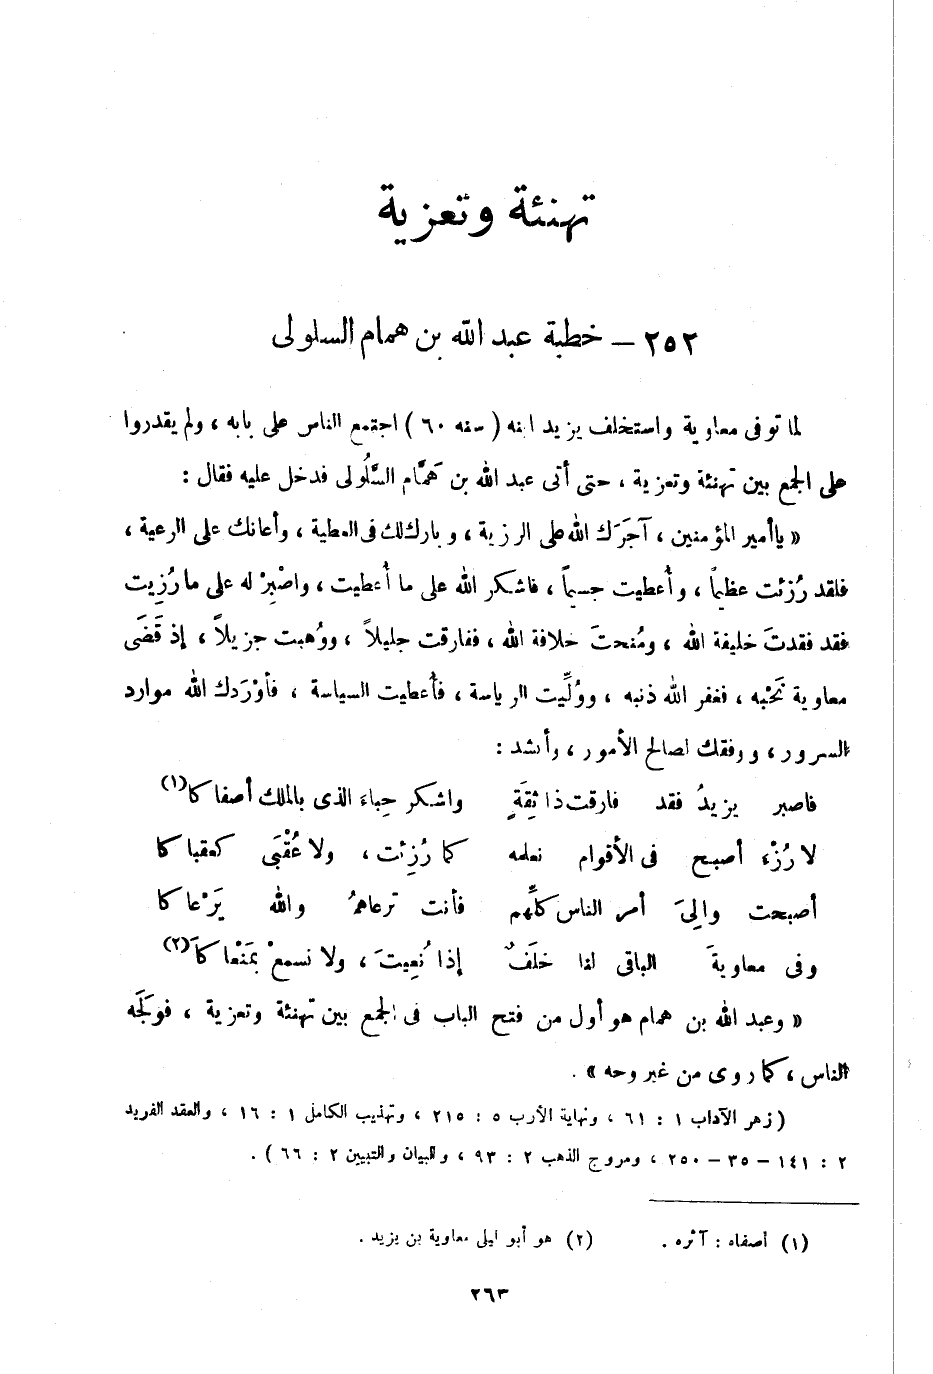 تهنئة وتعزية
٢٥٢ – خطبة عبد الله بن همام السلولى
لما توفى معاوية واستخلف يزيد ابنه ( سنه ٦٠ ) اجتمع الناس على بابه ، ولم يقدروا
على الجمع بين تهنئة وتعزية ، حتى أتى عبد الله بن هَمَّام السَّلُولى فدخل عليه فقال :
« ياأمير المؤمنين ، آجَرَك الله على الرزية ، وبارك لك فى العطية ، وأعانك على الرعية ،
فلقد رُزئت عظيما ، وأُعطيت جسيماً ، فاشكر الله على ما أُعطيت ، واصْبِرْ له على ما رُزِيت
فقد فقدتَ خليفة الله ، ومُنحتَ خلافة الله ، ففارقت جليلاً ، ووُهبت جزيلاً ، إذ قَضَى
معاوية نَحْبه ، فغفر الله ذنبه ، ووُلِّيت الرياسة ، فأُعطيت السياسة ، فأوْرَدك الله موارد
السرور ، ووفقك لصالح الأمور ، وأنشد :
فاصبر يزيدُ فقد فارقت ذا ثِقَةٍ واشكر حِباءَ الذى بالملك أصفاكا(١)
لا رُزْء أصبح فى الأقوام نعلمه كما رُزِئت ، ولا عُقْبَى كعقباكا
أصبحت والِىَ أمر الناس كلِّهم فأنت ترعاهمُ والله يَرْعاكا
وفى معاويةَ الباقى لنا خلَفٌ إذا نُعِيتَ ، ولا نسمعْ بمَنْعاكاَ(٢)
« وعبد الله بن همام هو أول من فتح الباب فى الجمع بين تهنئة وتعزية ، فوَلَجَه
الناس ، كما روى من غير وجه » .
( زهر الآداب ١ : ٦١ ، ونهاية الأرب ٥ : ٢١٥ ، وتهذيب الكامل ١ : ١٦ ، والعقد الفريد
٢ : ١٤١ – ٣٥ – ٢٥٠ ، ومروج الذهب ٢ : ٩٣ ، والبيان والتبيين ٢ : ٦٦ ) .
(١) أصفاه : آثره . (٢) هو أبو ليلى معاوية بن يزيد .
٢٦٣